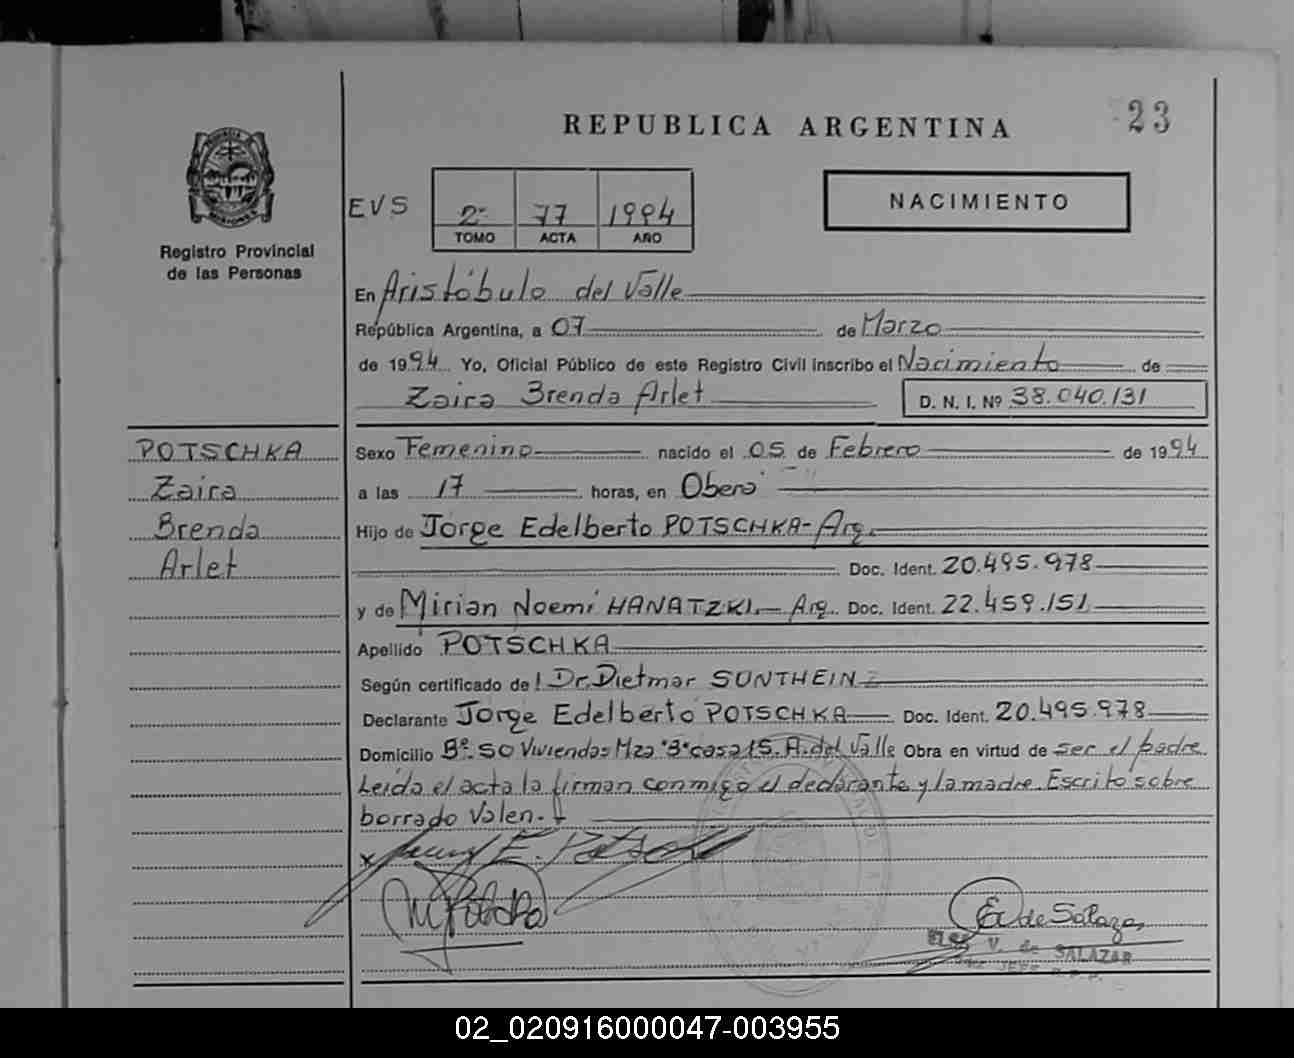 REPUBLICA ARGENTINA
23
Registro Provincial
de las Personas
EVS
2º 77 1994
TOMO ACTA AÑO
NACIMIENTO
En Aristóbulo del Valle
República Argentina, a 07 de Marzo
de 1994 Yo, Oficial Público de este Registro Civil inscribo el Nacimiento de
Zaira Brenda Arlet D. N. I. Nº 38.040.131
POTSCHKA
Zaira
Brenda
Arlet
Sexo Femenino nacido el 05 de Febrero de 1994
a las 17 horas, en Oberá
Hijo de Jorge Edelberto POTSCHKA-Arg.
Doc. Ident. 20.495.978
y de Mirian Noemí HANATZKI.- Arg. Doc. Ident. 22.459.151
Apellido POTSCHKA
Según certificado de l Dr. Dietmar SONTHEIN
Declarante Jorge Edelberto POTSCHKA Doc. Ident. 20.495.978
Domicilio Bº. 50 Viviendas Mza "3" casa 15. A. del Valle Obra en virtud de ser el padre
Leída el acta la firman conmigo el declarante y la madre. Escrito sobre
borrado Valen.-
E. de Salazar
V. de SALAZAR
JEFE R.P.P.
02_020916000047-003955